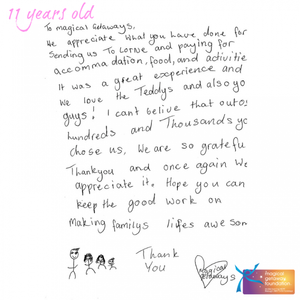 11 years old
To magical Getaways,
We appreciate what you have done for
sending us To Lorne and paying for
accommadation, food, and activitie
It was a great experience and
We love the Teddys and also go
guys! I cant belive that outo
hundreds and Thousands yo
chose us. We are so gratefu
Thankyou and once again We
appreciate it. Hope you can
keep the good work on
Making familys lifes awesom
Thank
You
Magical
Getaways
magical
getaways
foundation